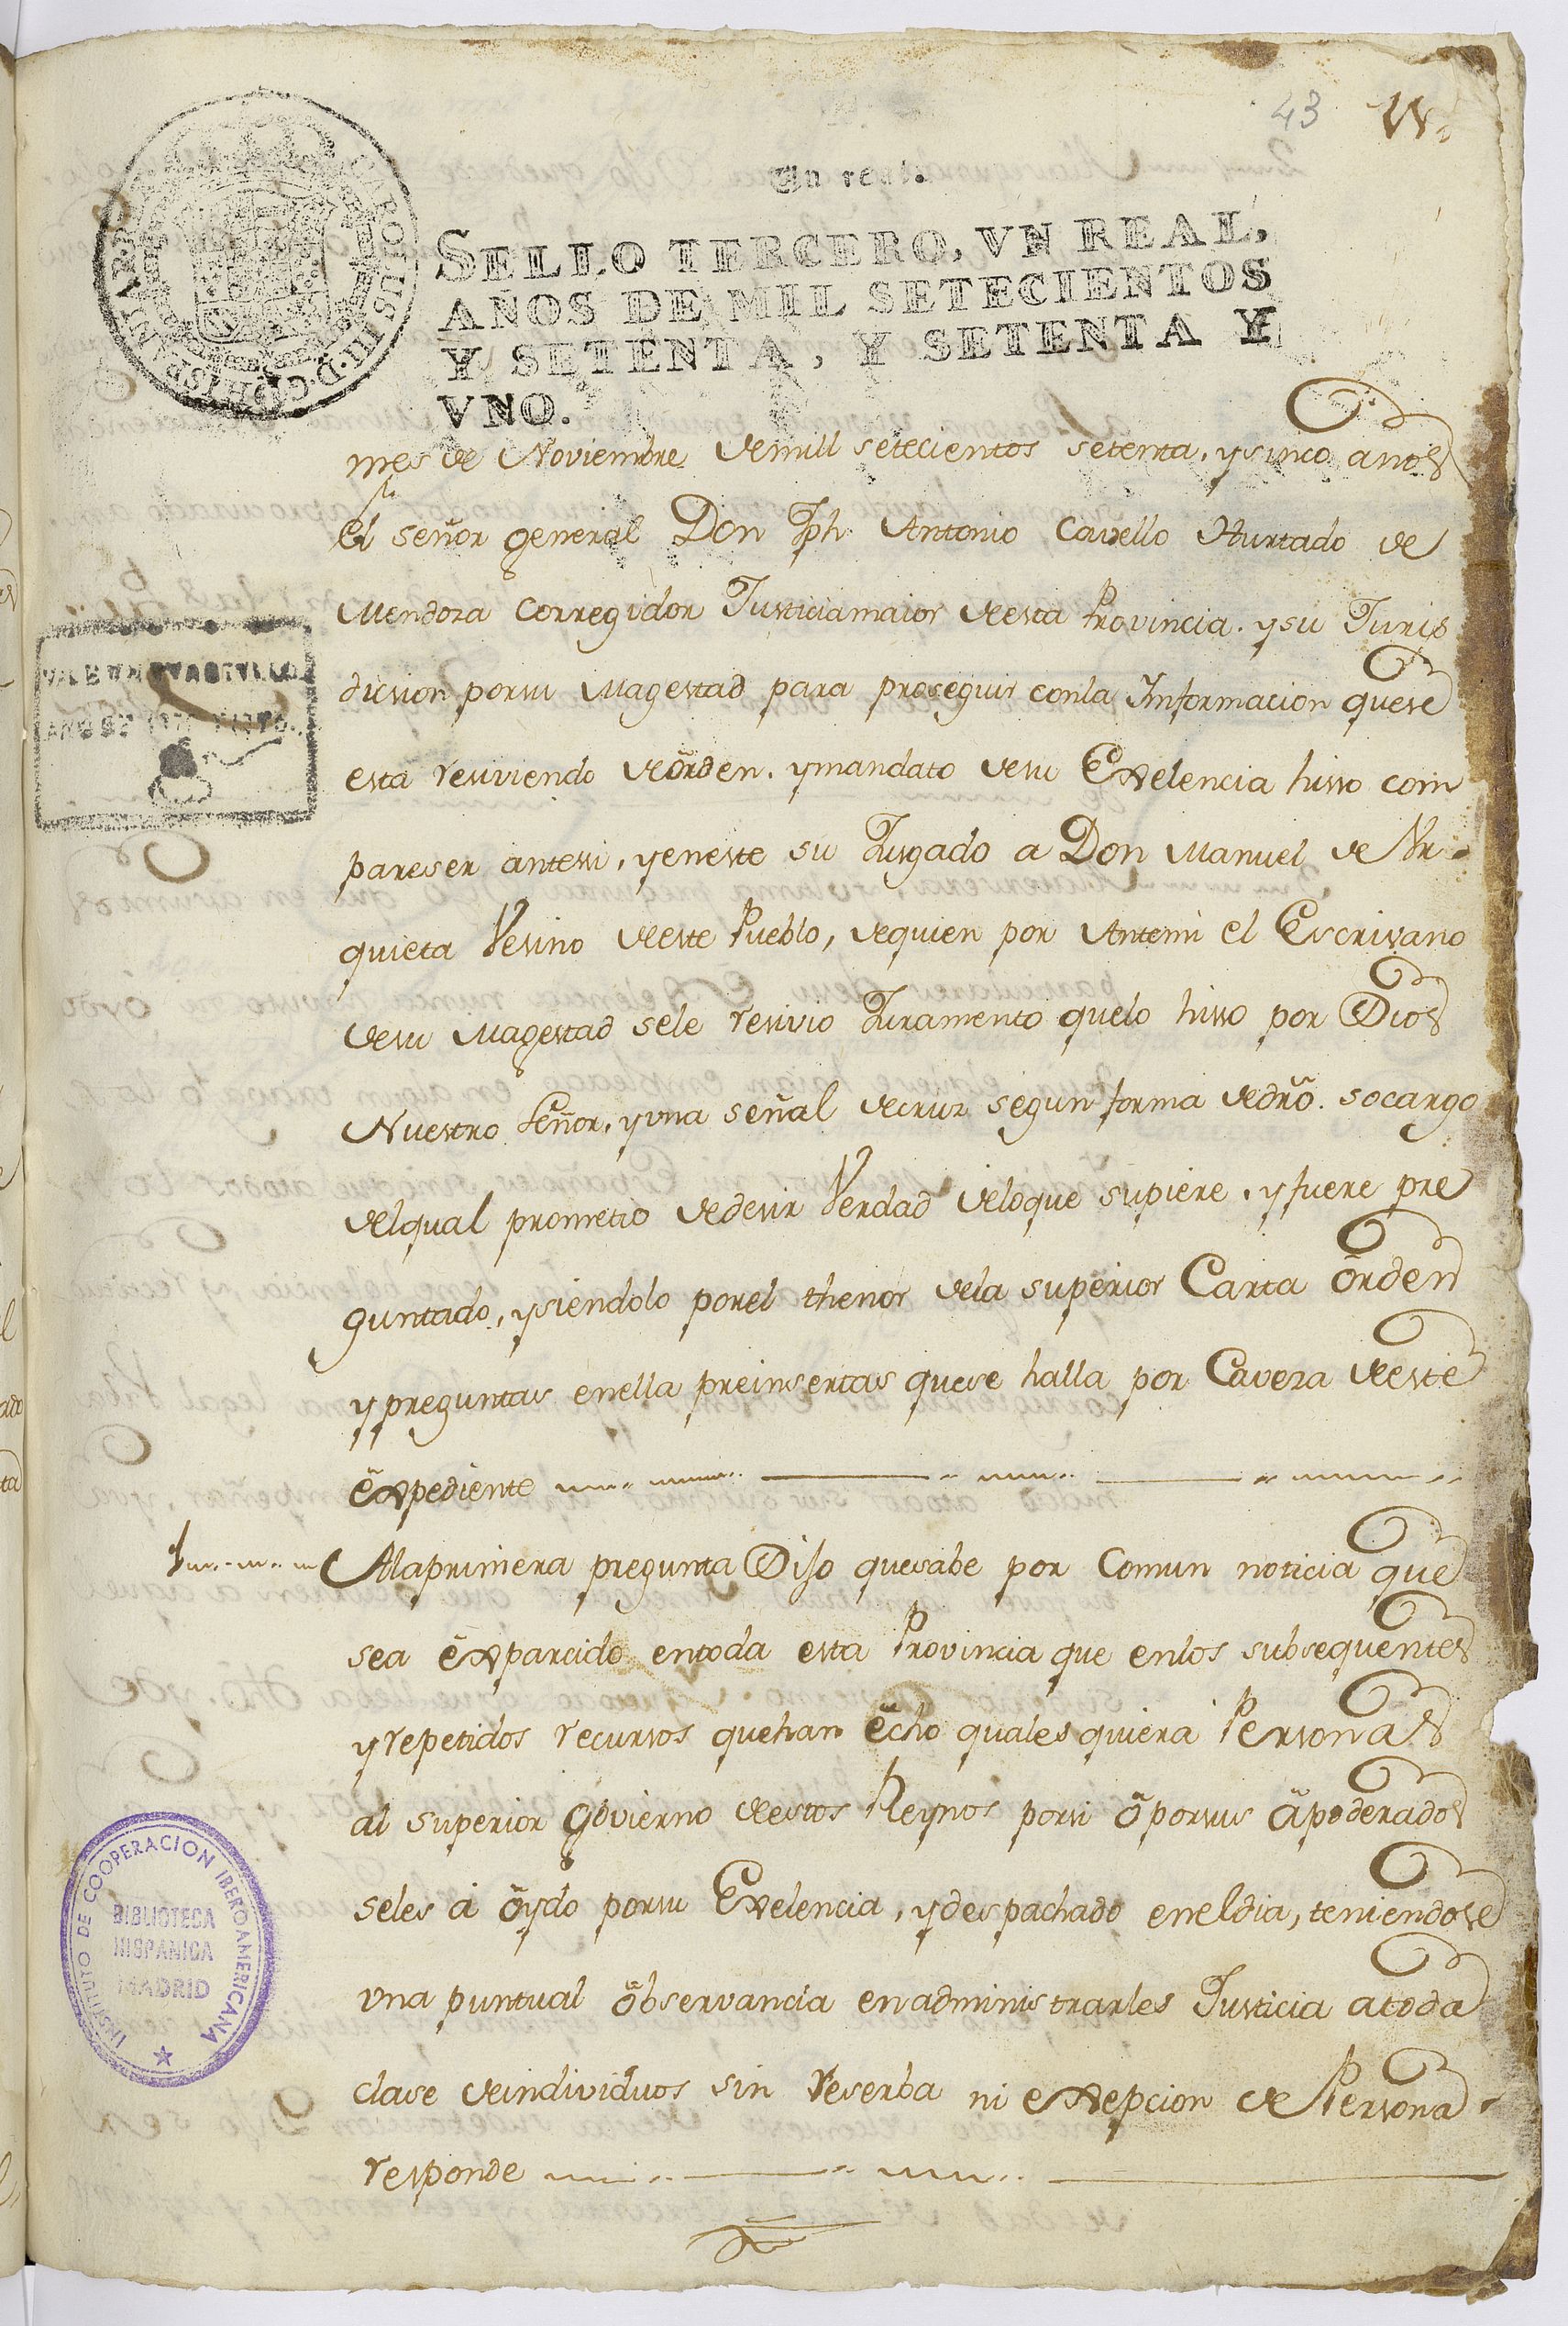 43
Un real.
SELLO TERCERO, VN REAL,
AÑOS DE MIL SETECIENTOS
Y SETENTA, Y SETENTA Y
VNO.
mes de Noviembre de mill setecientos setenta, y sinco años
el señor general Don Jph Antonio Cavello Hurtado de
Mendoza Corregidor Justicia maior de esta Provincia. y su Juris
diccion por su Magestad para proseguir con la Informacion que se
esta resiviendo de orden. y mandato de su Exelencia hisso com
pareser ante ssi, y en este su Jusgado a Don Manuel de Ur-
quieta Vesino de este Pueblo, de quien por Antemi el Escrivano
de su Magestad se le resivio Juramento que lo hisso por Dios
Nuestro Señor, y una señal de cruz segun forma de dro. so cargo
del qual prometio de desir Verdad de lo que supiere, y fuere pre
guntado, y siendolo por el thenor de la superior Carta orden
y preguntas en ella preinsertas que se halla por Caveza de este
expediente
1 A la primera pregunta Dijo que sabe por Comun noticia que
se a exparcido en toda esta Provincia que en los subsequentes
y repetidos recursos que han echo quales quiera Personas
al superior Govierno de estos Reynos por si o por sus apoderados
se les a oydo por su Exelencia, y despachado en el dia, teniendose
una puntual observancia en administrarles Justicia a toda
clase de individuos sin reserba ni exepcion de Persona
responde
INSTITUTO DE COOPERACION IBEROAMERICANA
BIBLIOTECA
HISPANICA
MADRID